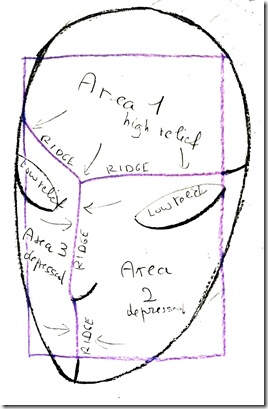 Area 1
high relief
RIDGE
RIDGE
Low relief
Low relief
RIDGE
Area 3
depressed
Area
2
depressed
RIDGE